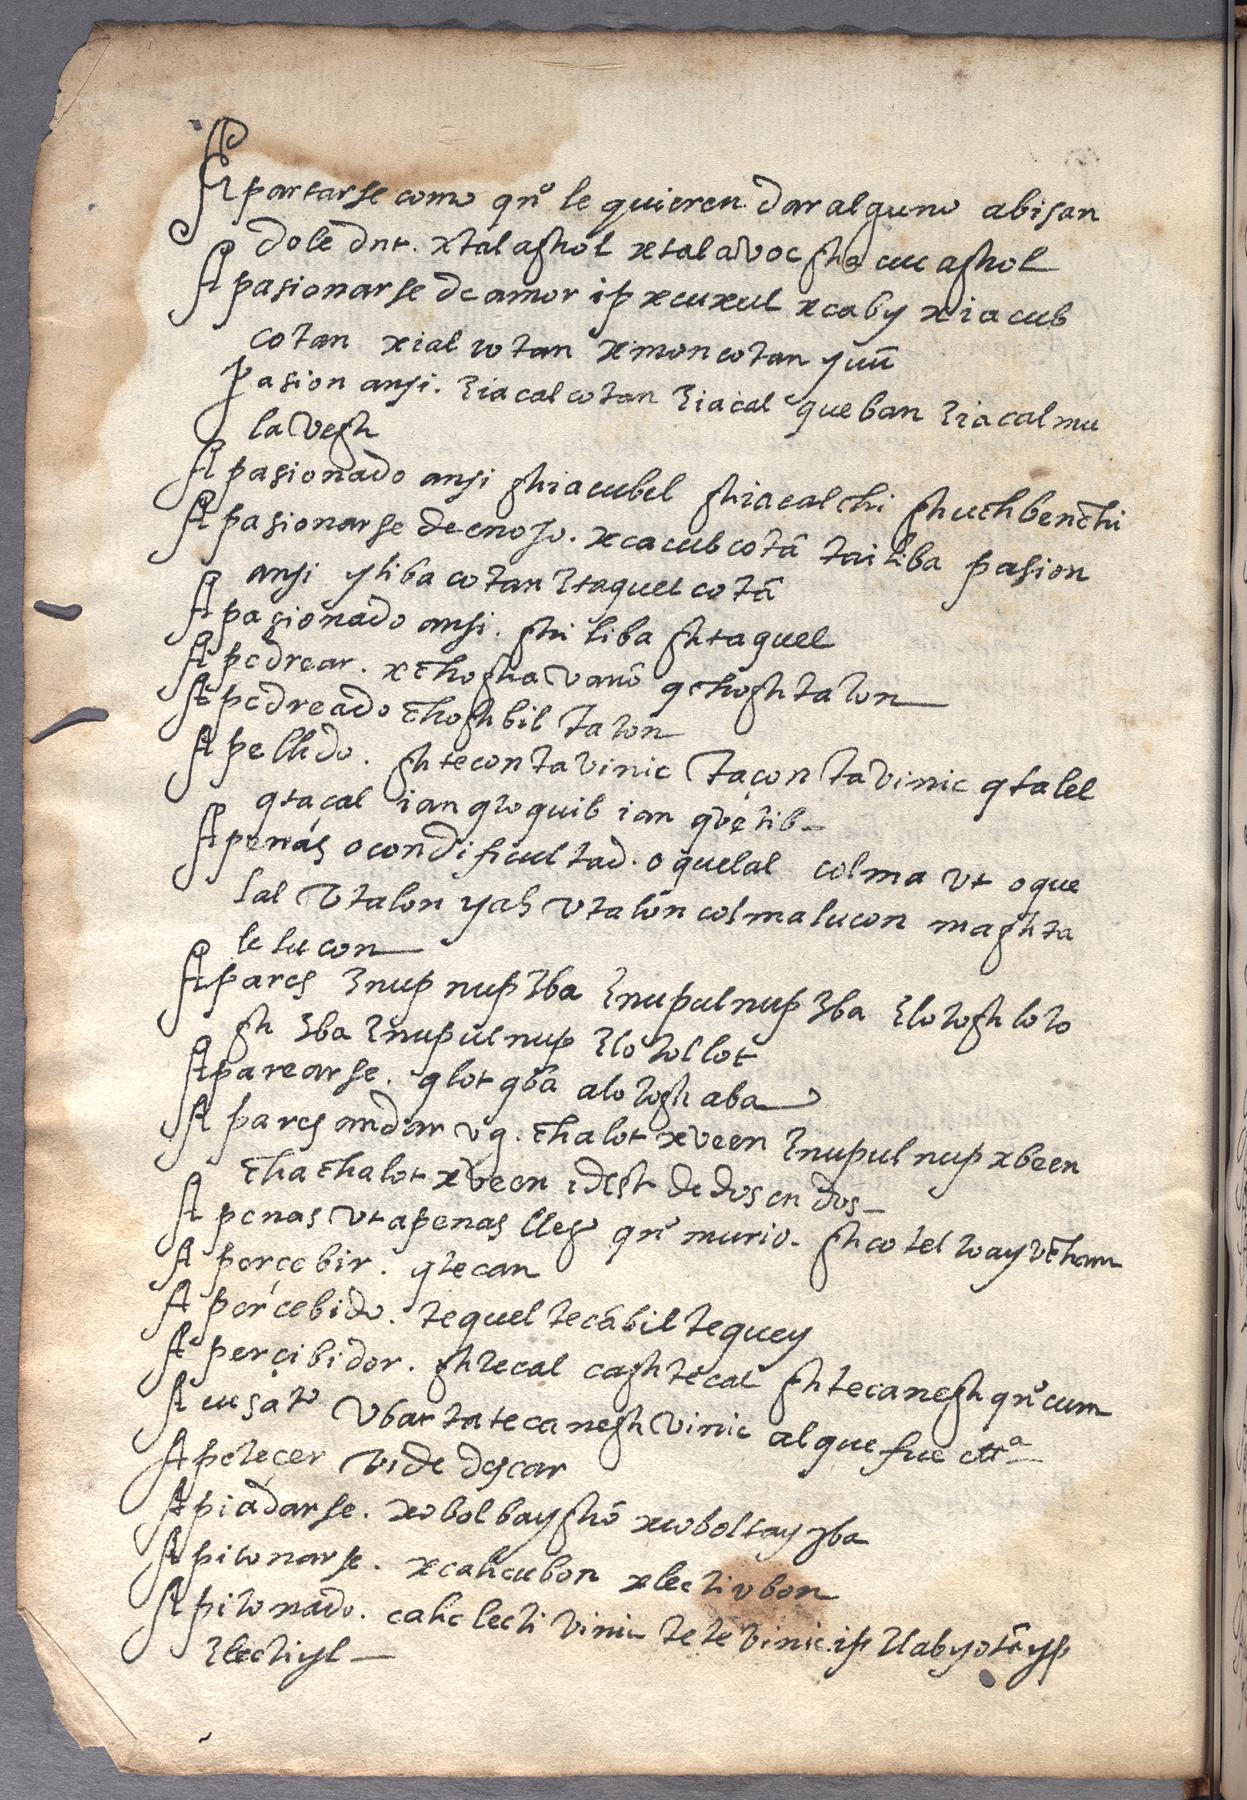 Apartarse como qn̄o le quieren dar alguno abisan
dole dnt. xtal aghol xtal avoc gha cuc aghol
Apasionarse de amor ip xcuxul xcaby xiacub
cotan xial cotan xmon cotan yuū
pasion ansi. ziacal cotan ziacal queban ziacal mu
lavegh
Apasionado ansi ghiacubel ghiacal chi ghuchbenchi
Apasionarse de enojo. xcacub cotā tai tiba pasion
ansi ytiba cotan ztaquel cotā
Apasionado ansi. ghi tiba ghtaquel
Apedrear. xchogha vanō qchogh ta ton
Apedreado choghbil ta ton
Apellido. ghtecon ta vinic tacon ta vinic qtalel
qtacal ian qloquib ian
Apenas o con dificultad. oquelal colma vt oque
lal vtalon yah vtalon colma lucon maghta
le lucon
Apares znup nup zba znupul nup zba zlotogh loto
gh zba znupul nup zlo tol lot
Aparearse. qlot qbā alotogh aba
Apares andar vg. chalot xveen znupul nup xbeen
cha chalot xveen idest de dos en dos
Apenas vt apenas llego qn̄o murio. ghco tel to ay vcham
Aperçebir. qtecan
Aperçebido. tequel tecabil tequey
Aperçibidor. ghtecal cagh tecal ghtecanegh qn̄o cum
Acusato vbar ta tecanegh vinic al que fue ettª
Apeteçer vide desear
Apiadarse. xobolbay ghō xcoboltay zba
Apitonarse. xcahcubon xlectivbon
Apitonado. cahc lecti vinic te te vinic ip
zlectiyl